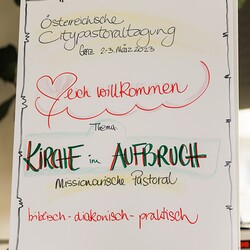 Österreichische
Citypastoraltagung
Graz 2.-3. März 2023
Herzlich willkommen
Thema:
KIRCHE im AUFBRUCH
Missionarische Pastoral
biblisch - diakonisch - praktisch